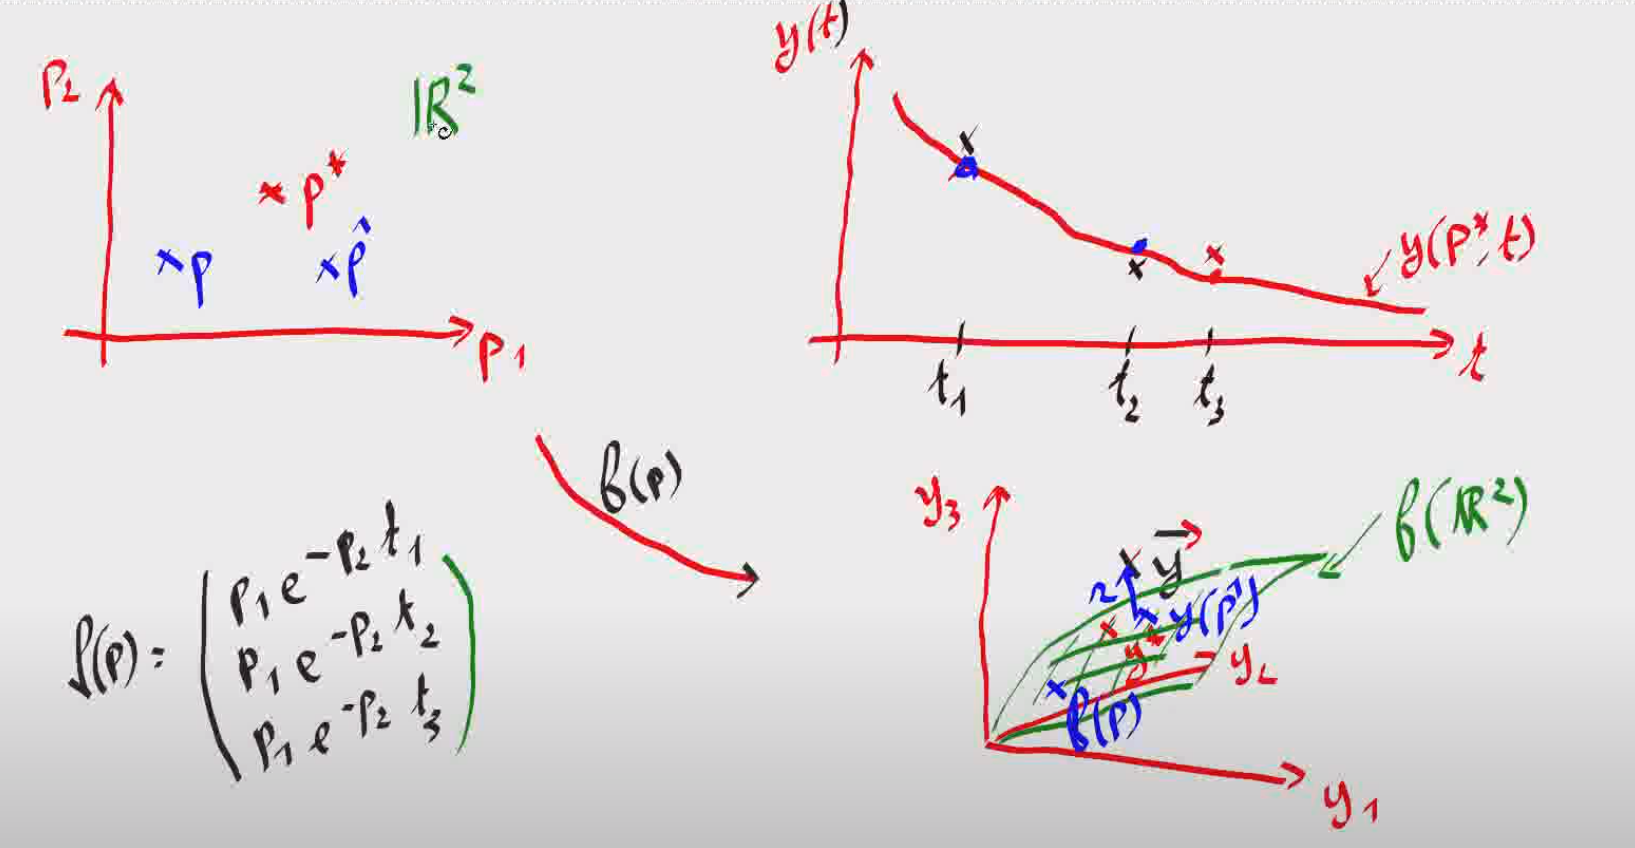 P₂
ℝ²
p*
p
p̂
p₁
y(t)
y(p*, t)
t₁ t₂ t₃
t
f(p)
f(p) = ( p₁ e^{-p₂ t₁}
p₁ e^{-p₂ t₂}
p₁ e^{-p₂ t₃} )
y₃
f(ℝ²)
y⃗
y(p̂)
y*
y₂
f(p)
y₁